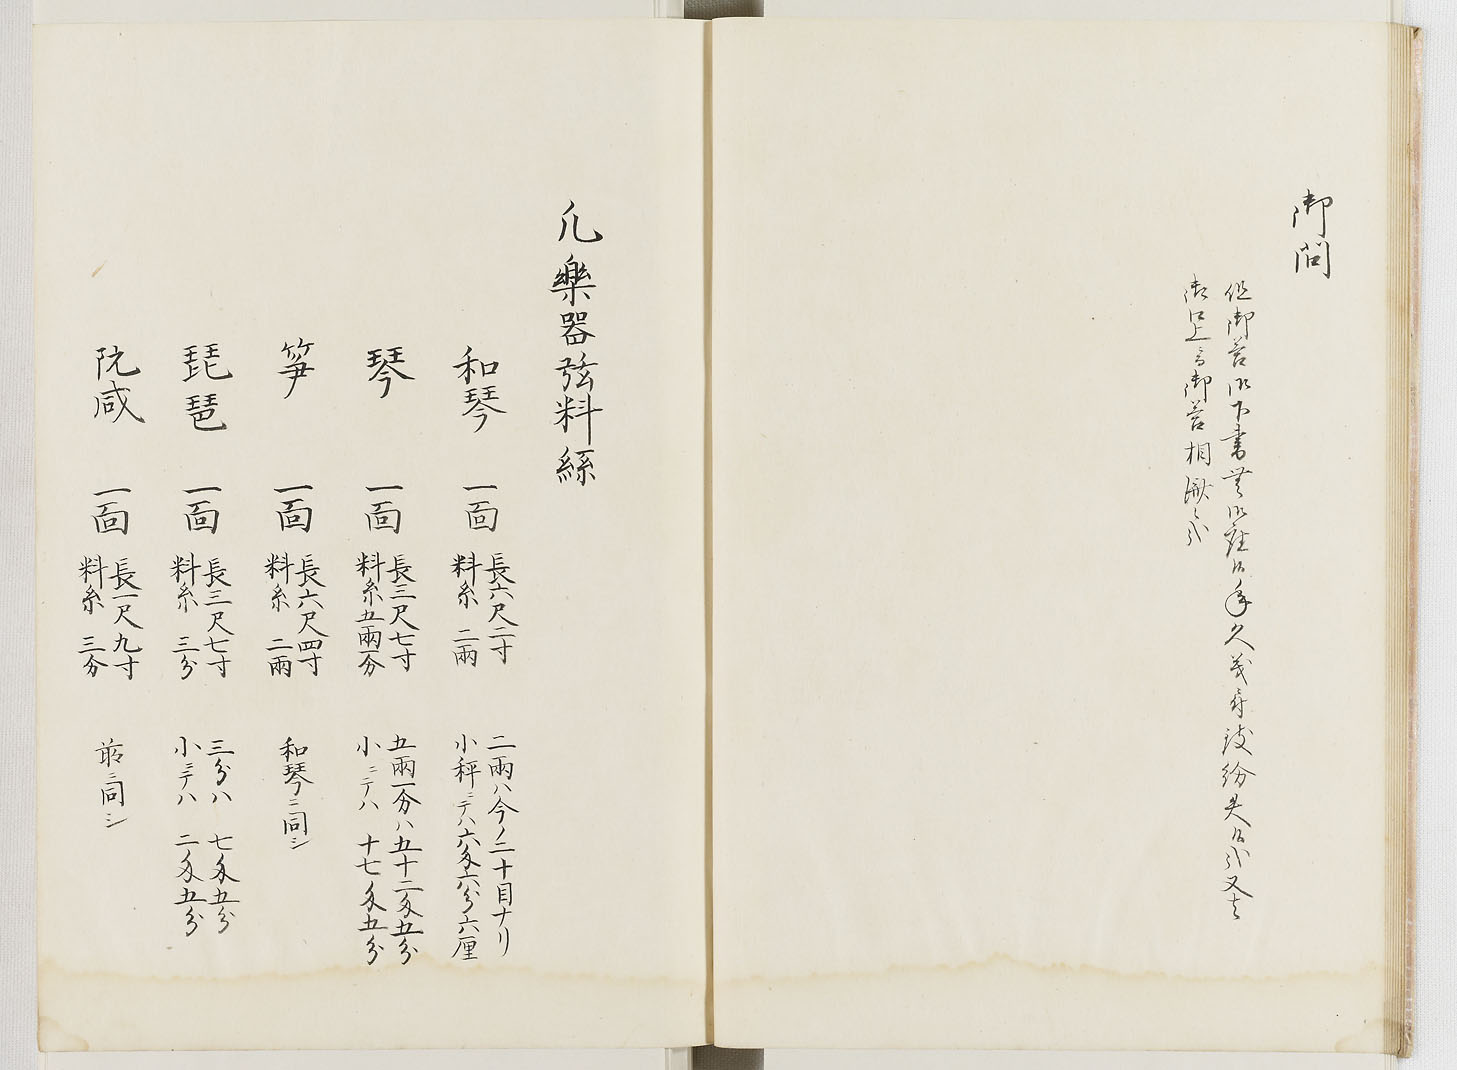 御問
但御答御下書無御座候年久義ニ付致紛失候哉又は
御口上ニ而御答相済候哉
凡樂器弦料絲
和琴 一面 長六尺二寸 料糸 二兩 二兩ハ今ノ二十目ナリ 小秤ニテハ六匁六分六厘
琴 一面 長三尺七寸 料糸五兩一分 五兩一分ハ五十二匁五分 小ニテハ 十七匁五分
箏 一面 長六尺四寸 料糸 二兩 和琴ニ同シ
琵琶 一面 長三尺七寸 料糸 三分 三分ハ 七匁五分 小ニテハ 二匁五分
阮咸 一面 長一尺九寸 料糸 三分 前ニ同シ